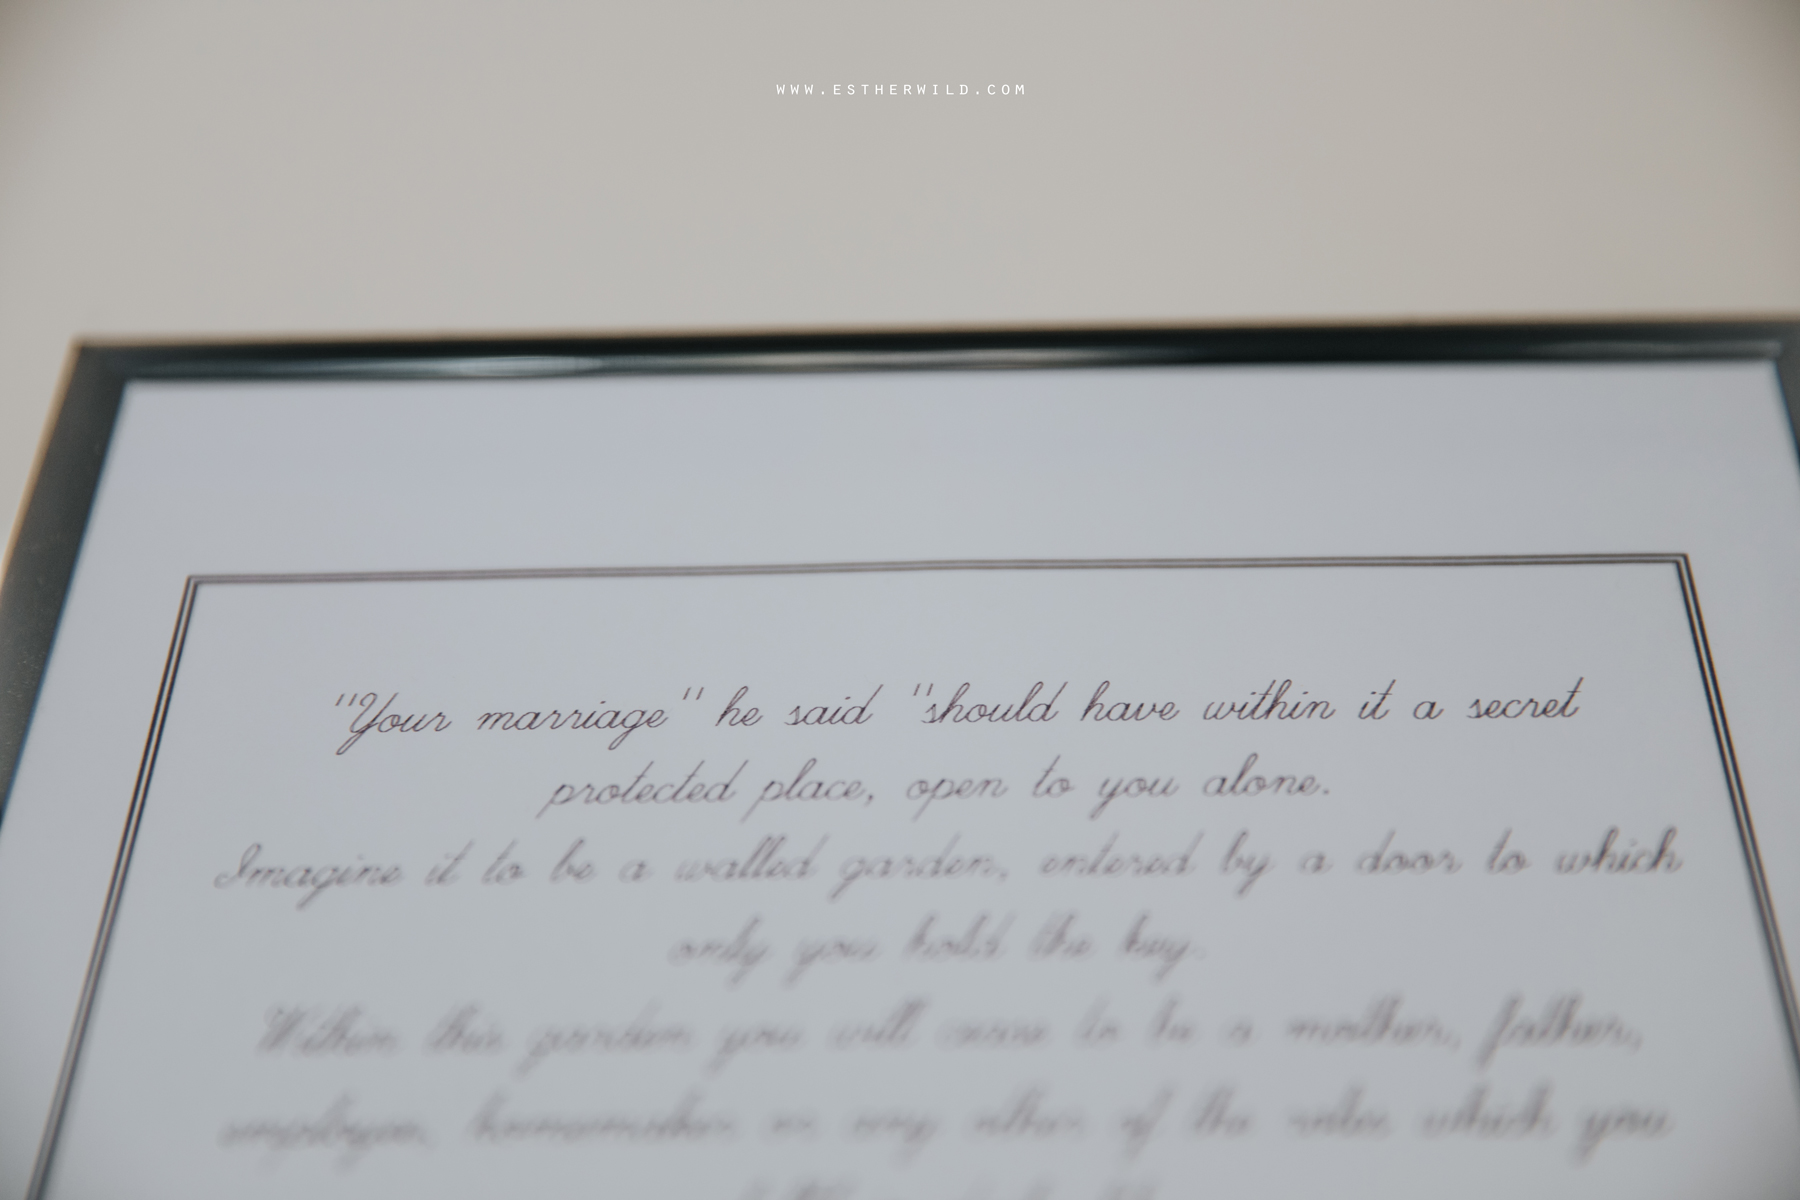 WWW.ESTHERWILD.COM
"Your marriage" he said "should have within it a secret
protected place, open to you alone.
Imagine it to be a walled garden, entered by a door to which
only you hold the key.
Within this garden you will cease to be a mother, father,
employee, homemaker or any other of the roles which you